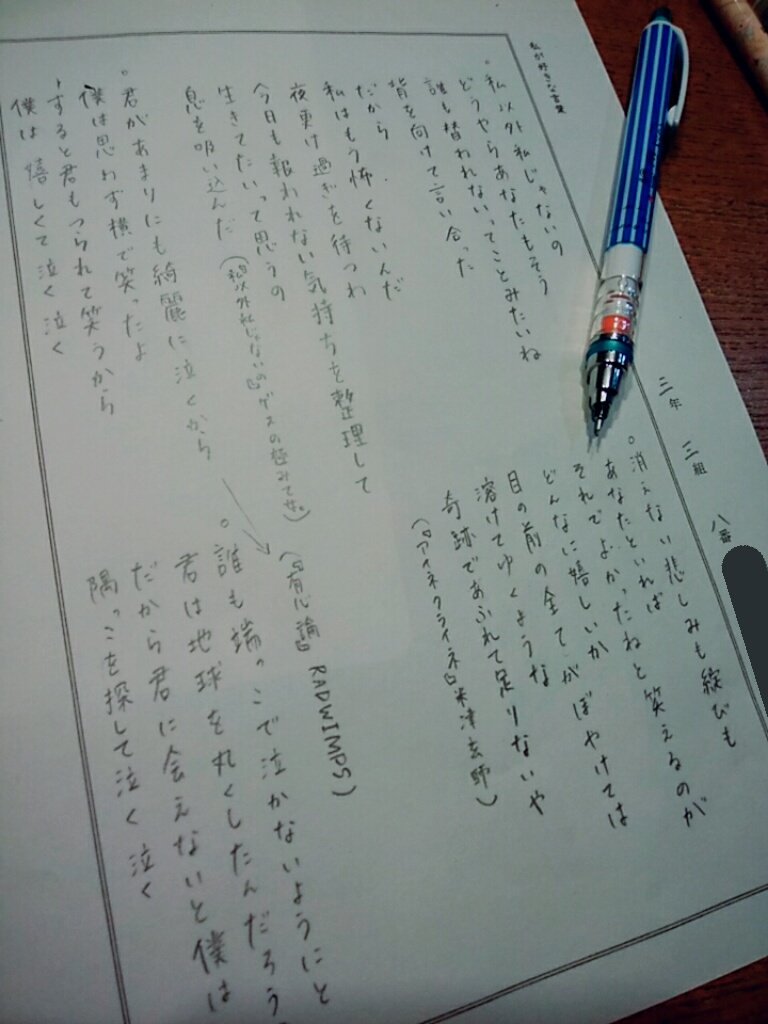 私が好きな言葉
三年 三組 八番
。私以外私じゃないの
どうやらあなたもそう
誰も替われないってことみたいね
背を向けて言い合った
だから
私はもう怖くないんだ
夜更け過ぎを待つわ
今日も報われない気持ちを整理して
生きてたいって思うの
息を吸い込んだ
(『私以外私じゃないの』ゲスの極み乙女。)
。消えない悲しみも綻びも
あなたといれば
それでよかったねと笑えるのが
どんなに嬉しいか
目の前の全てがぼやけては
溶けてゆくような
奇跡であふれて足りないや
(『アイネクライネ』米津玄師)
。君があまりにも綺麗に泣くから
僕は思わず横で笑ったよ
すると君もつられて笑うから
僕は嬉しくて泣く泣く
(『有心論』RADWIMPS)
。誰も端っこで泣かないようにと
君は地球を丸くしたんだろう
だから君に会えないと僕は
隅っこを探して泣く泣く